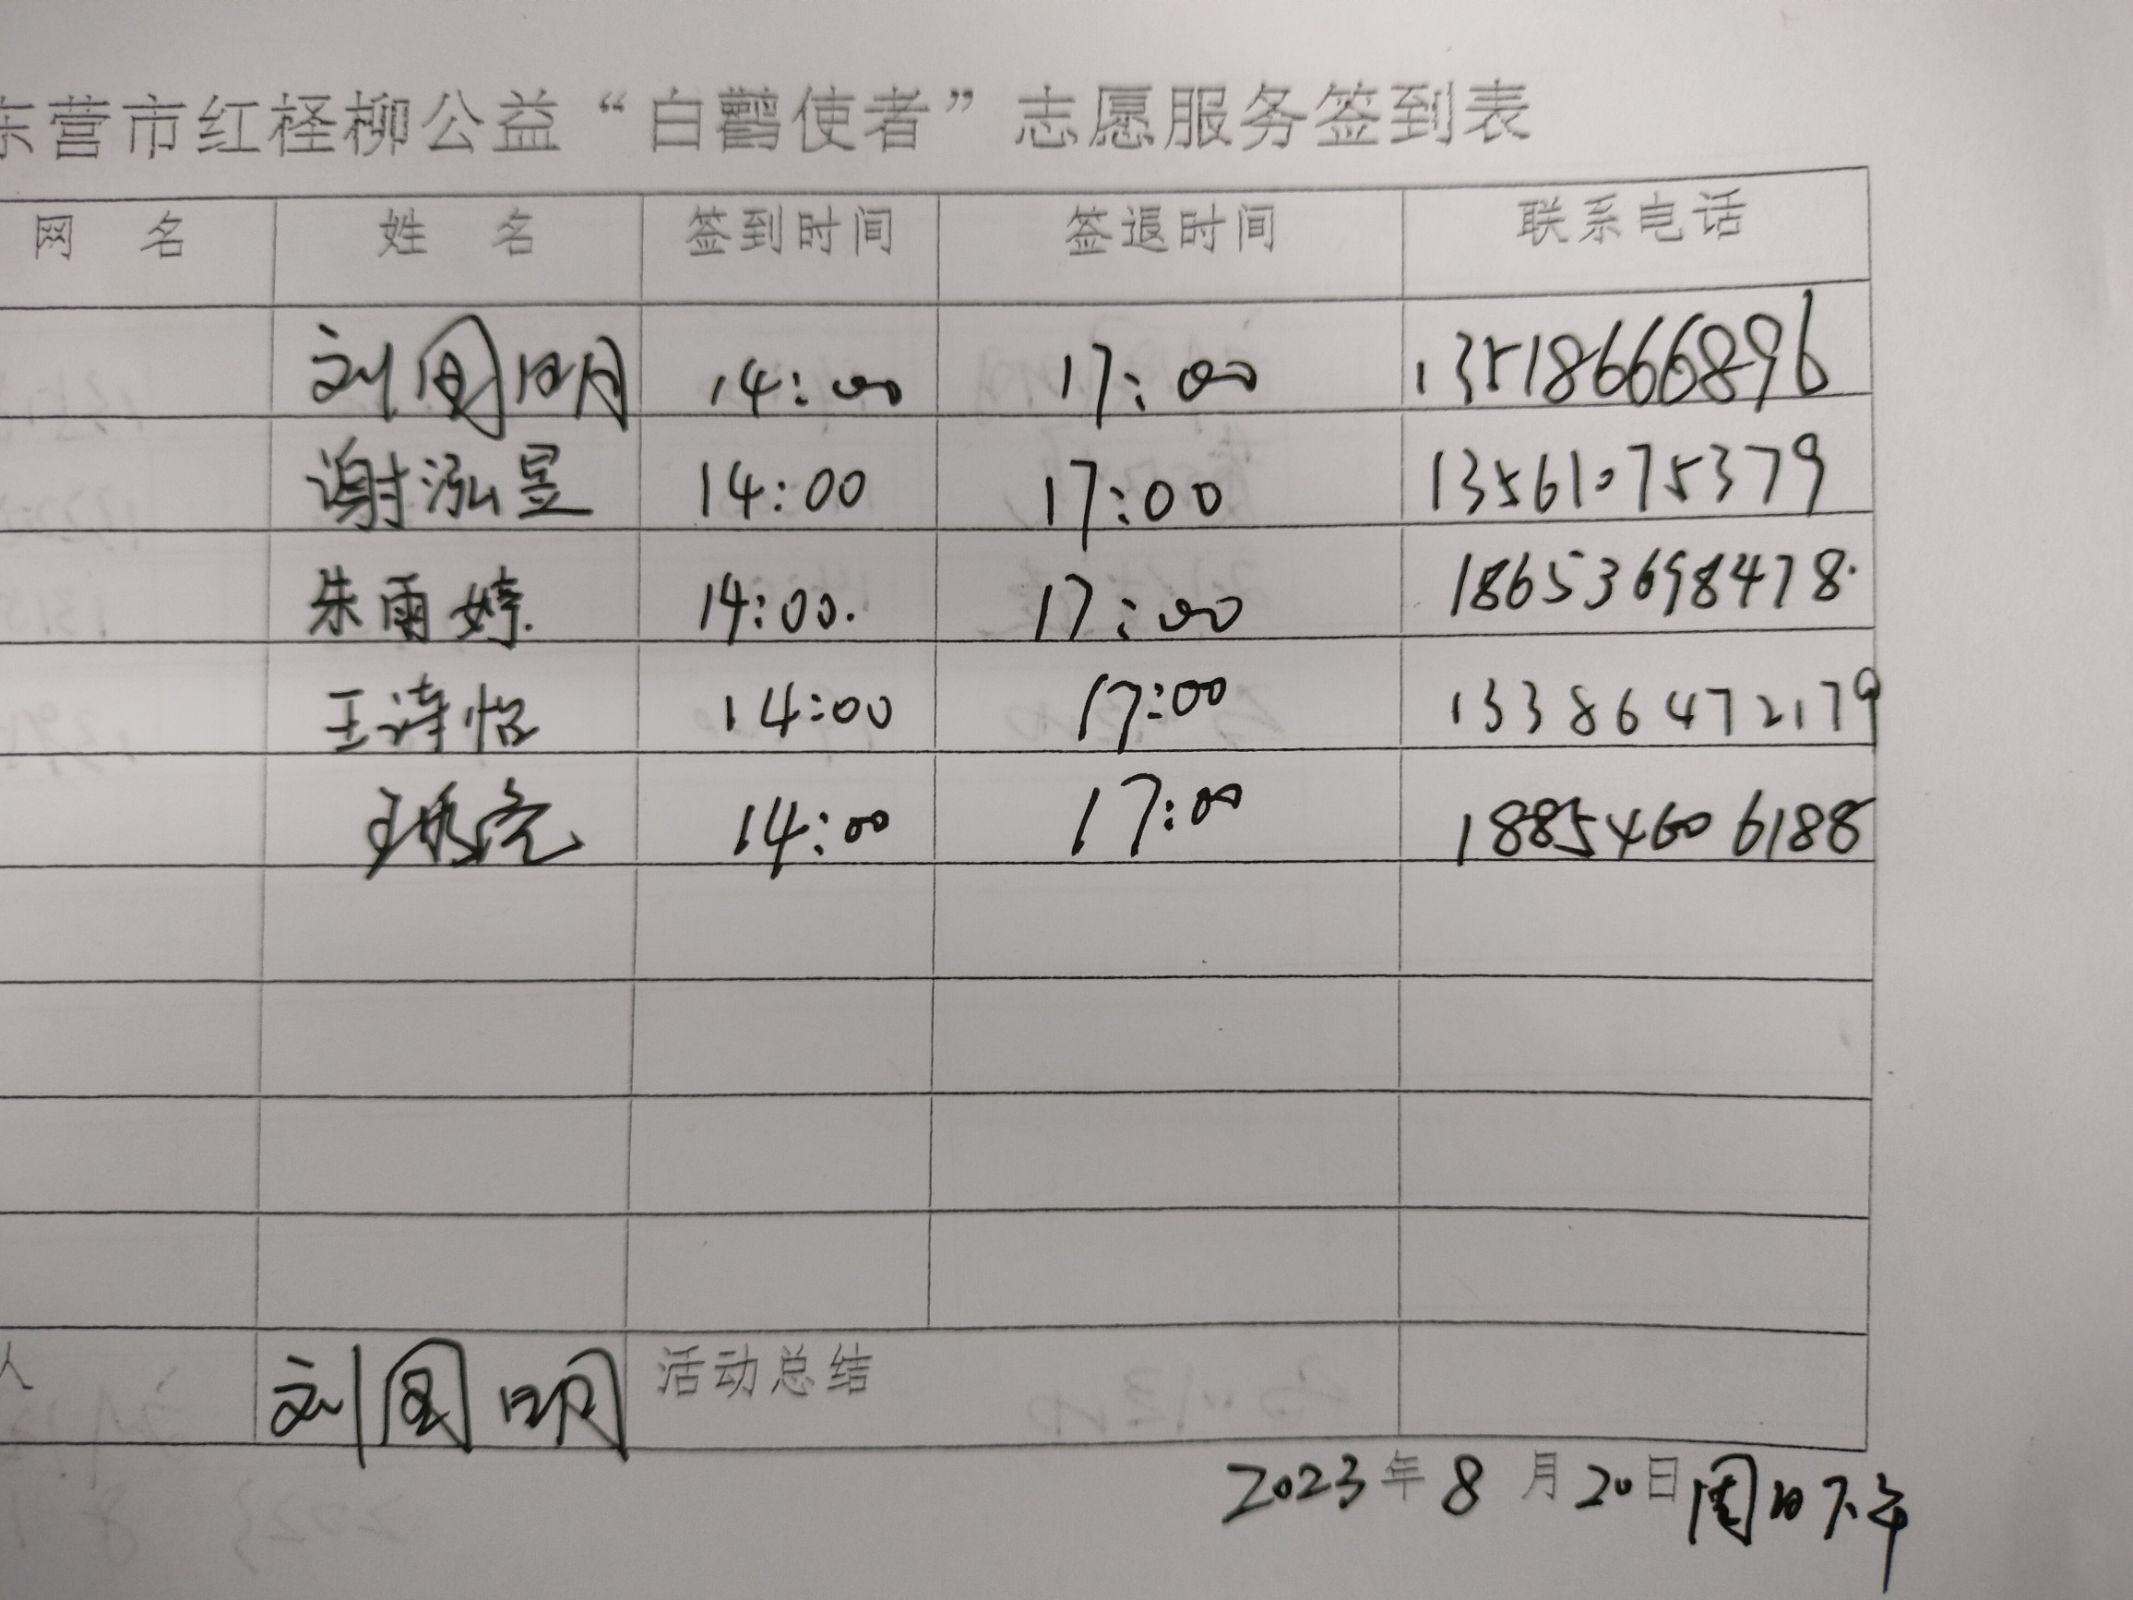 东营市红柽柳公益“白鹳使者”志愿服务签到表
网 名 姓 名 签到时间 签退时间 联系电话
刘国明 14:00 17:00 13518666896
谢泓昱 14:00 17:00 13561075379
朱雨婷 14:00. 17:00 18653698478.
王诗怡 14:00 17:00 13386472179
14:00 17:00 18854606188
人 刘国明 活动总结
2023年8月20日周日下午